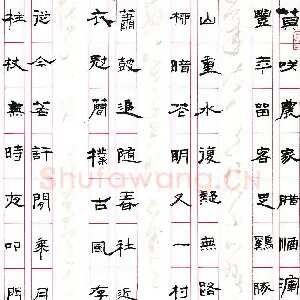 莫咲農家腊酒渾
豐年留客足鷄豚
山重水復疑無路
柳暗花明又一村
蕭鼓追隨春社近
衣冠簡樸古風存
從今若許閒乘月
拄杖無時夜叩門
Shufawang.CN